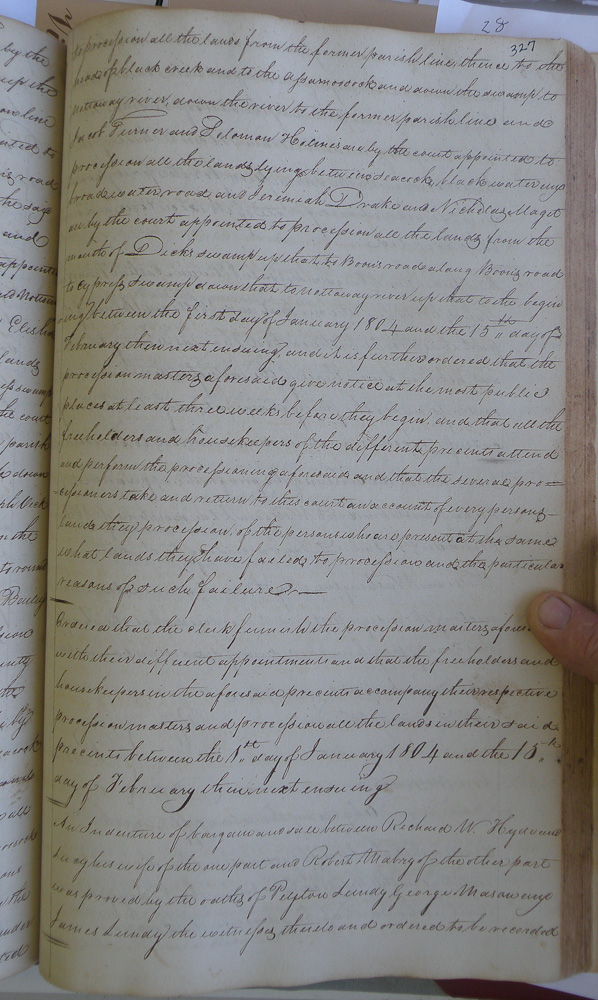 28
327
to procession all the lands from the former parish line thence to the
head of black creek and to the assamoosock and down the swamp to
nottoway river, down the river to the former parish line and
Jacob Turner and Solomon Holmes are by the court appointed to
procession all the lands lying between seacock, black water and
broadwater road and Jeremiah Drake and Nicholas Maget
are by the court appointed to procession all the lands from the
mouth of Dicks swamp up that to Boons road along Boons road
to Cypress swamp down that to nottoway river up that to the begin
ing between the first day of January 1804 and the 15th day of
February then next ensuing, and it is further ordered that the
procession masters aforesaid give notice at the most public
places at least three weeks before they begin, and that all the
freeholders and housekeepers of the different precents attend
and perform the processioning aforesaid and that the several pro=
=cessioners take and return to this court an account of every persons
lands they procession, of the persons who are present at the same
what lands they have failed to procession and the particular
reasons of such failure
Ordered that the clerk furnish the procession masters
with their different appointments and that the freeholders and
housekeepers in the aforesaid precents accompany their respective
procession masters and procession all the lands in their said
precents between the 1st day of January 1804 and the 15th
day of February then next ensuing
An Indenture of bargain and sale between Richard W. Hyde and
his wife of the one part and Robert Mabry of the other part
was proved by the oaths of Peyton Lundy George Mason and
James Lundy the witnesses thereto and ordered to be recorded
by the
up the
line
to
road
and
appointed
and
Elisha
lands
swamp
the court
parish
down
the
Bailey
by
all
the